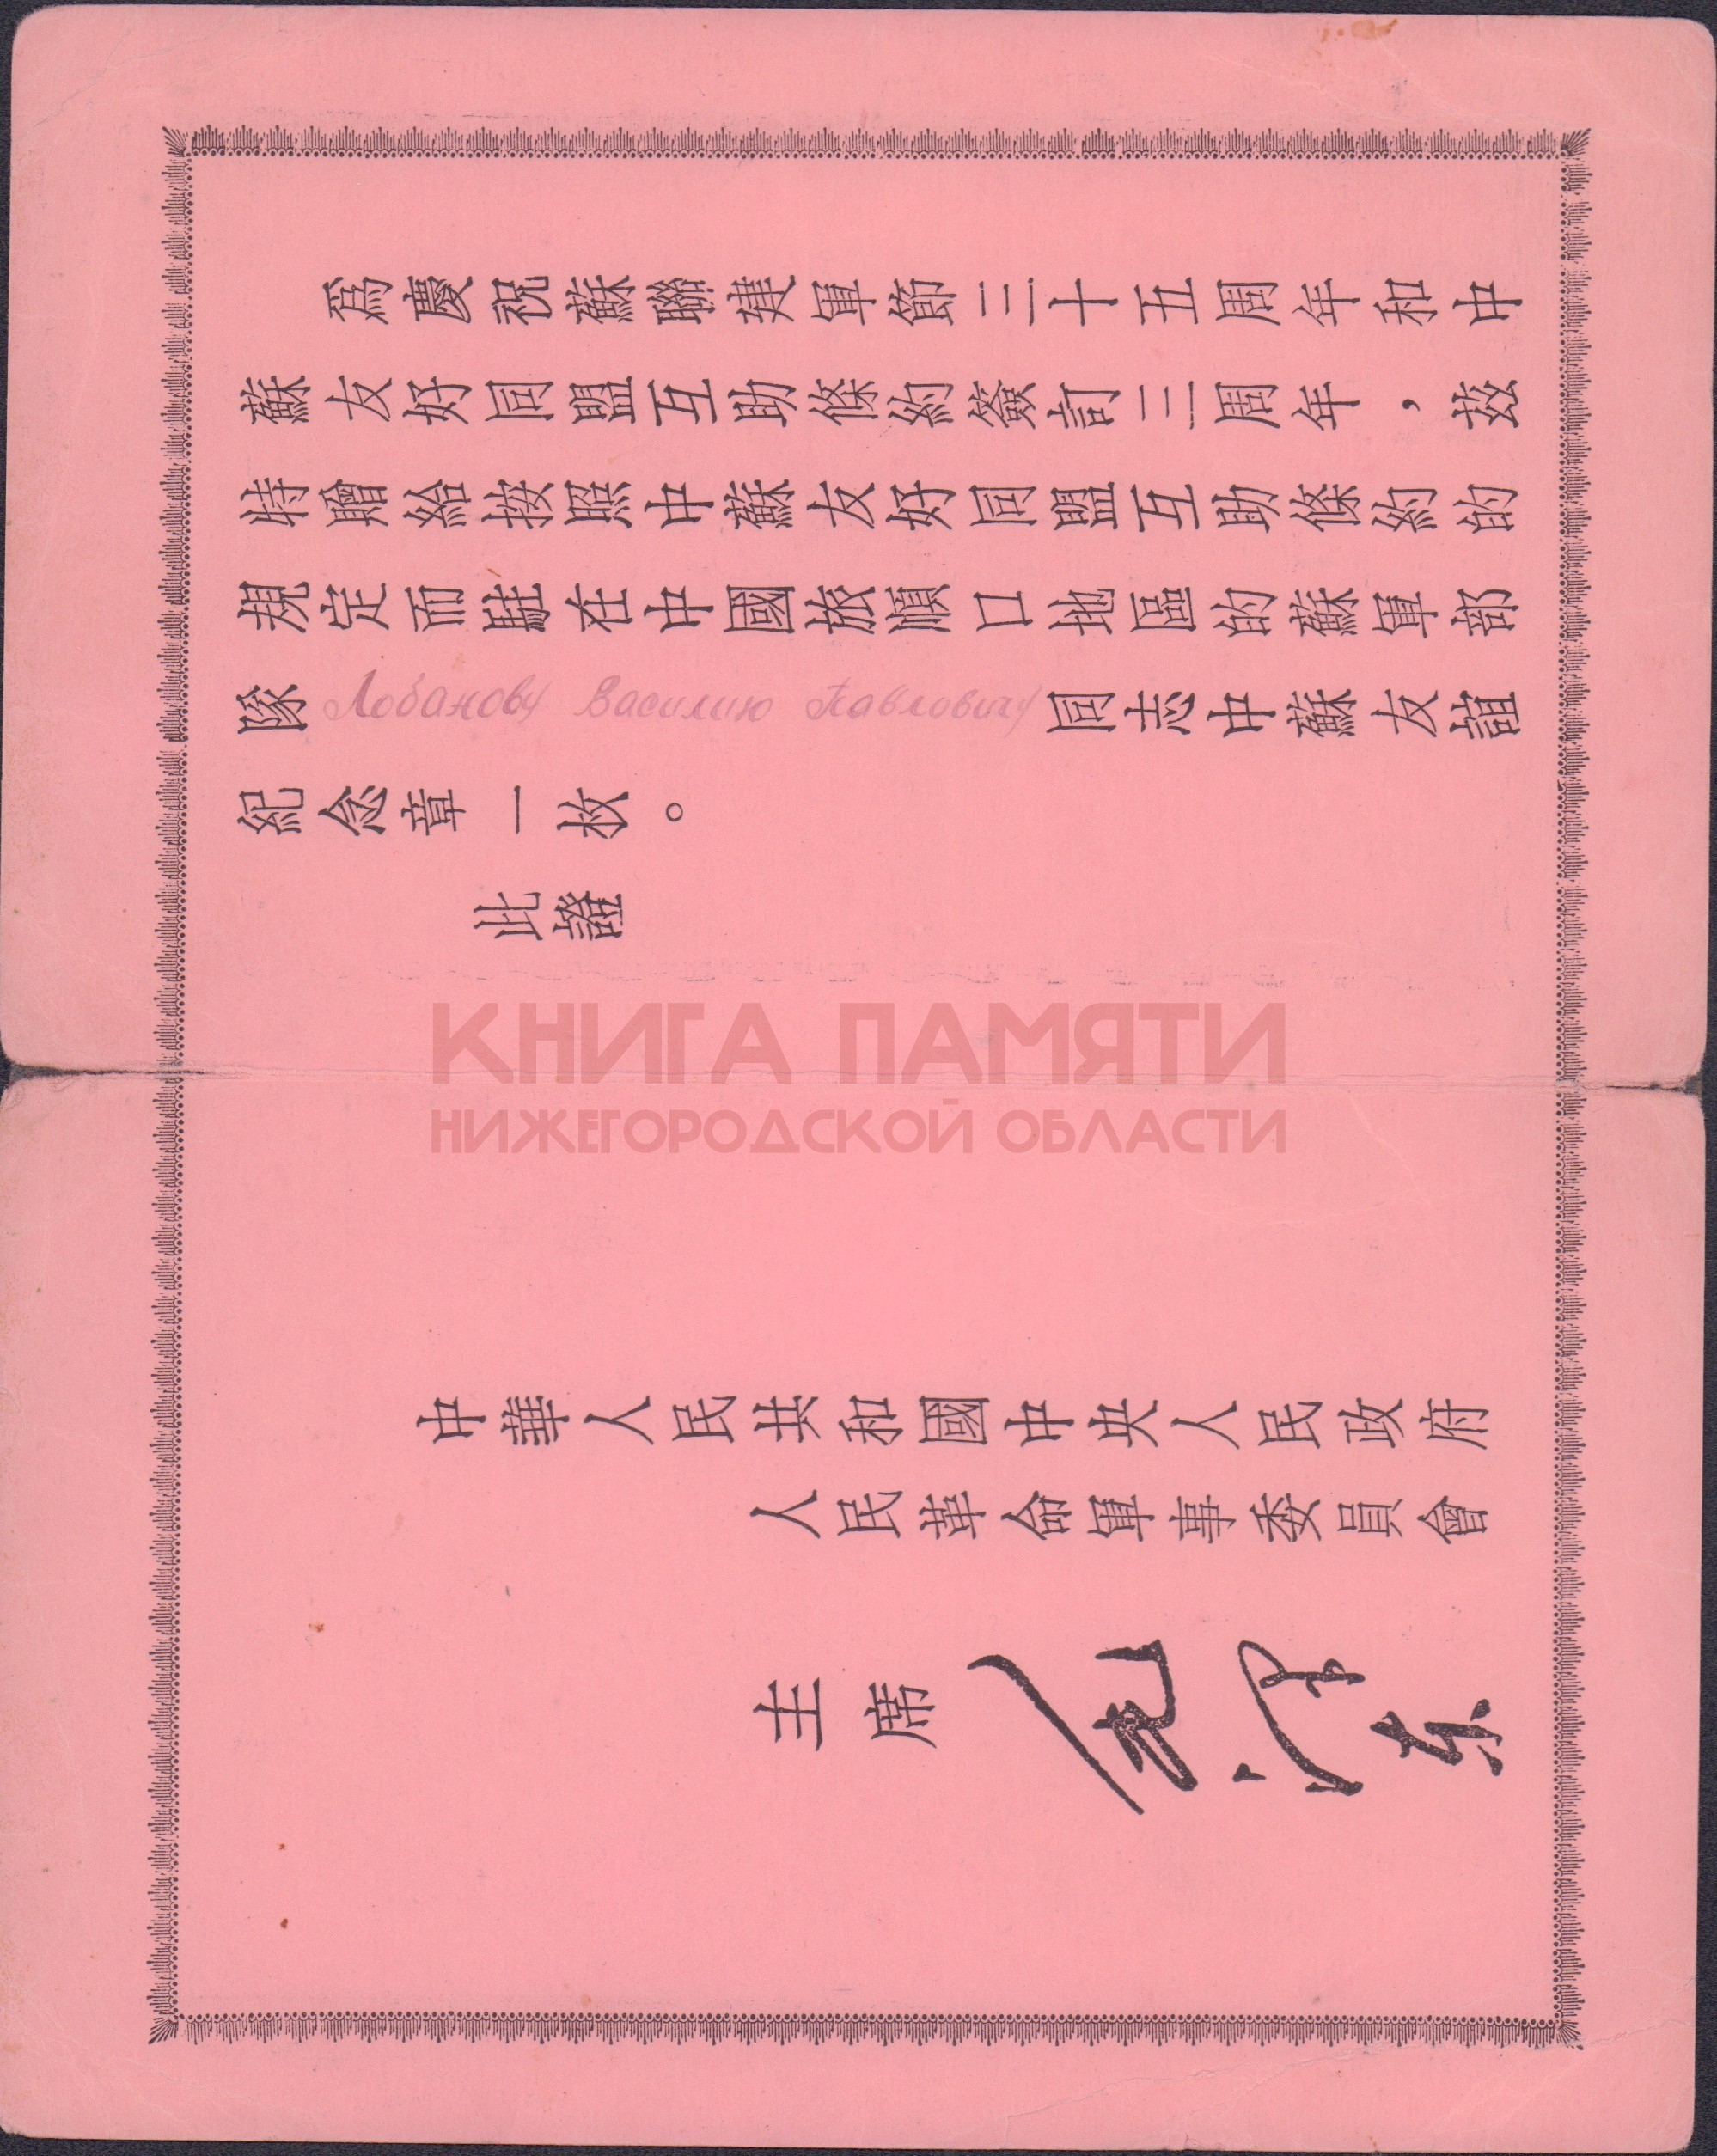 爲慶祝蘇聯建軍節三十五周年和中
蘇友好同盟互助條約簽訂三周年，茲
特贈給按照中蘇友好同盟互助條約的
規定而駐在中國旅順口地區的蘇軍部
隊 Лобанову Василию Павловичу 同志中蘇友誼
紀念章一枚。
此證
КНИГА ПАМЯТИ
НИЖЕГОРОДСКОЙ ОБЛАСТИ
中華人民共和國中央人民政府
人民革命軍事委員會
主席 毛澤東